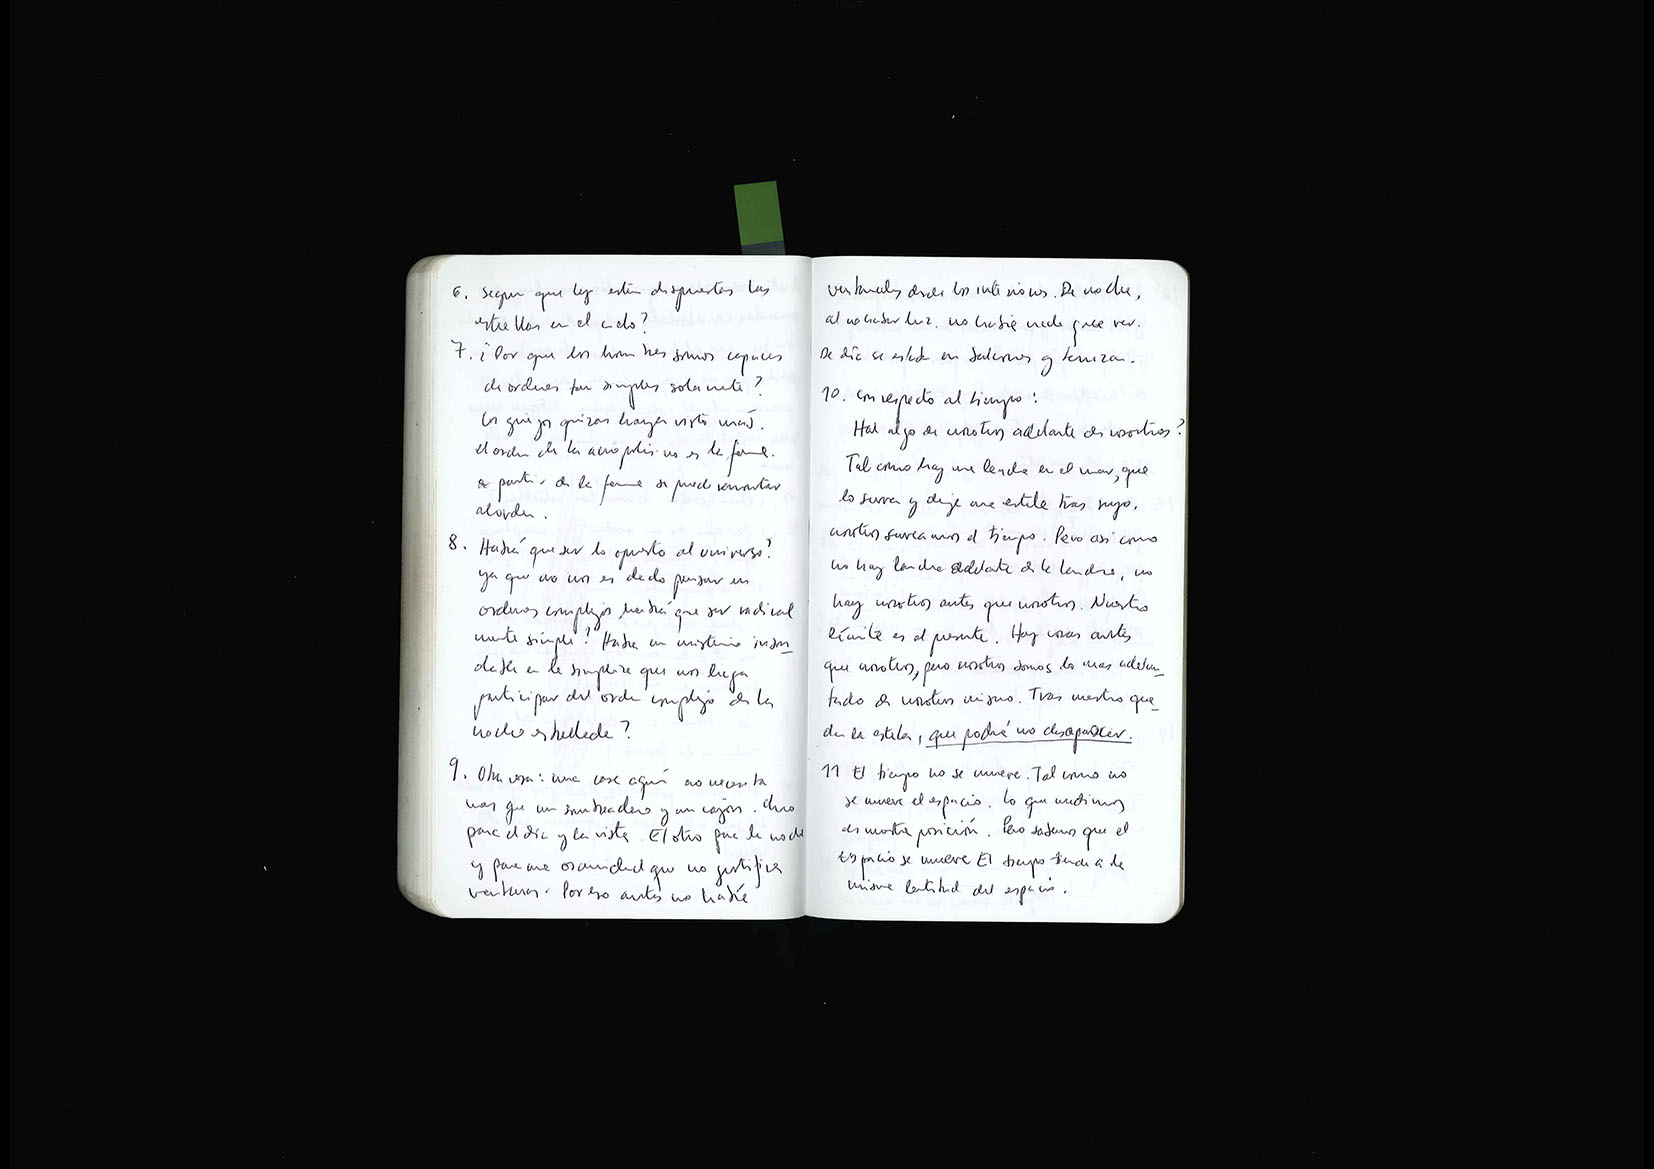 6. Segun que ley estan dispuestas las
estrellas en el cielo?
7. ¿Por que los hombres somos capaces
de ordenes tan simples solamente?
Los griegos quizas hayan visto más.
El orden de la acropolis no es la forma.
a partir de la forma se puede remontar
al orden.
8. Habrá que ser lo opuesto al universo?
ya que no nos es dado pensar en
ordenes complejos, habrá que ser radical
mente simple? Habra un misterio inson_
dable en la simpleza que nos haga
participar del orden complejo de la
noche estrellada?
9. Otra cosa: una casa aquí no necesita
mas que un sombreadero y un cajón. Uno
para el día y la vista. El otro para la noche
y para una oscuridad que no justifica
ventanas. Por eso antes no había
ventanales desde los interiores. De noche,
al no haber luz. no había nada que ver.
De día se estaba en balcones y terrazas.
10. Con respecto al tiempo:
Hai algo de nosotros adelante de nosotros?
Tal como hay una lancha en el mar, que
lo surca y deja una estela tras suyo,
nosotros surcamos el tiempo. Pero asi como
no hay lancha adelante de la lancha, no
hay nosotros antes que nosotros. Nuestro
límite es el presente. Hay cosas antes
que nosotros, pero nosotros somos lo mas adelan_
tado de nosotros mismo. Tras nuestro que_
da la estela, que podrá no desaparecer.
11 El tiempo no se mueve. Tal como no
se mueve el espacio. Lo que medimos
es nuestra posición. Pero sabemos que el
Espacio se mueve El tiempo tendra la
misma lentitud del espacio.